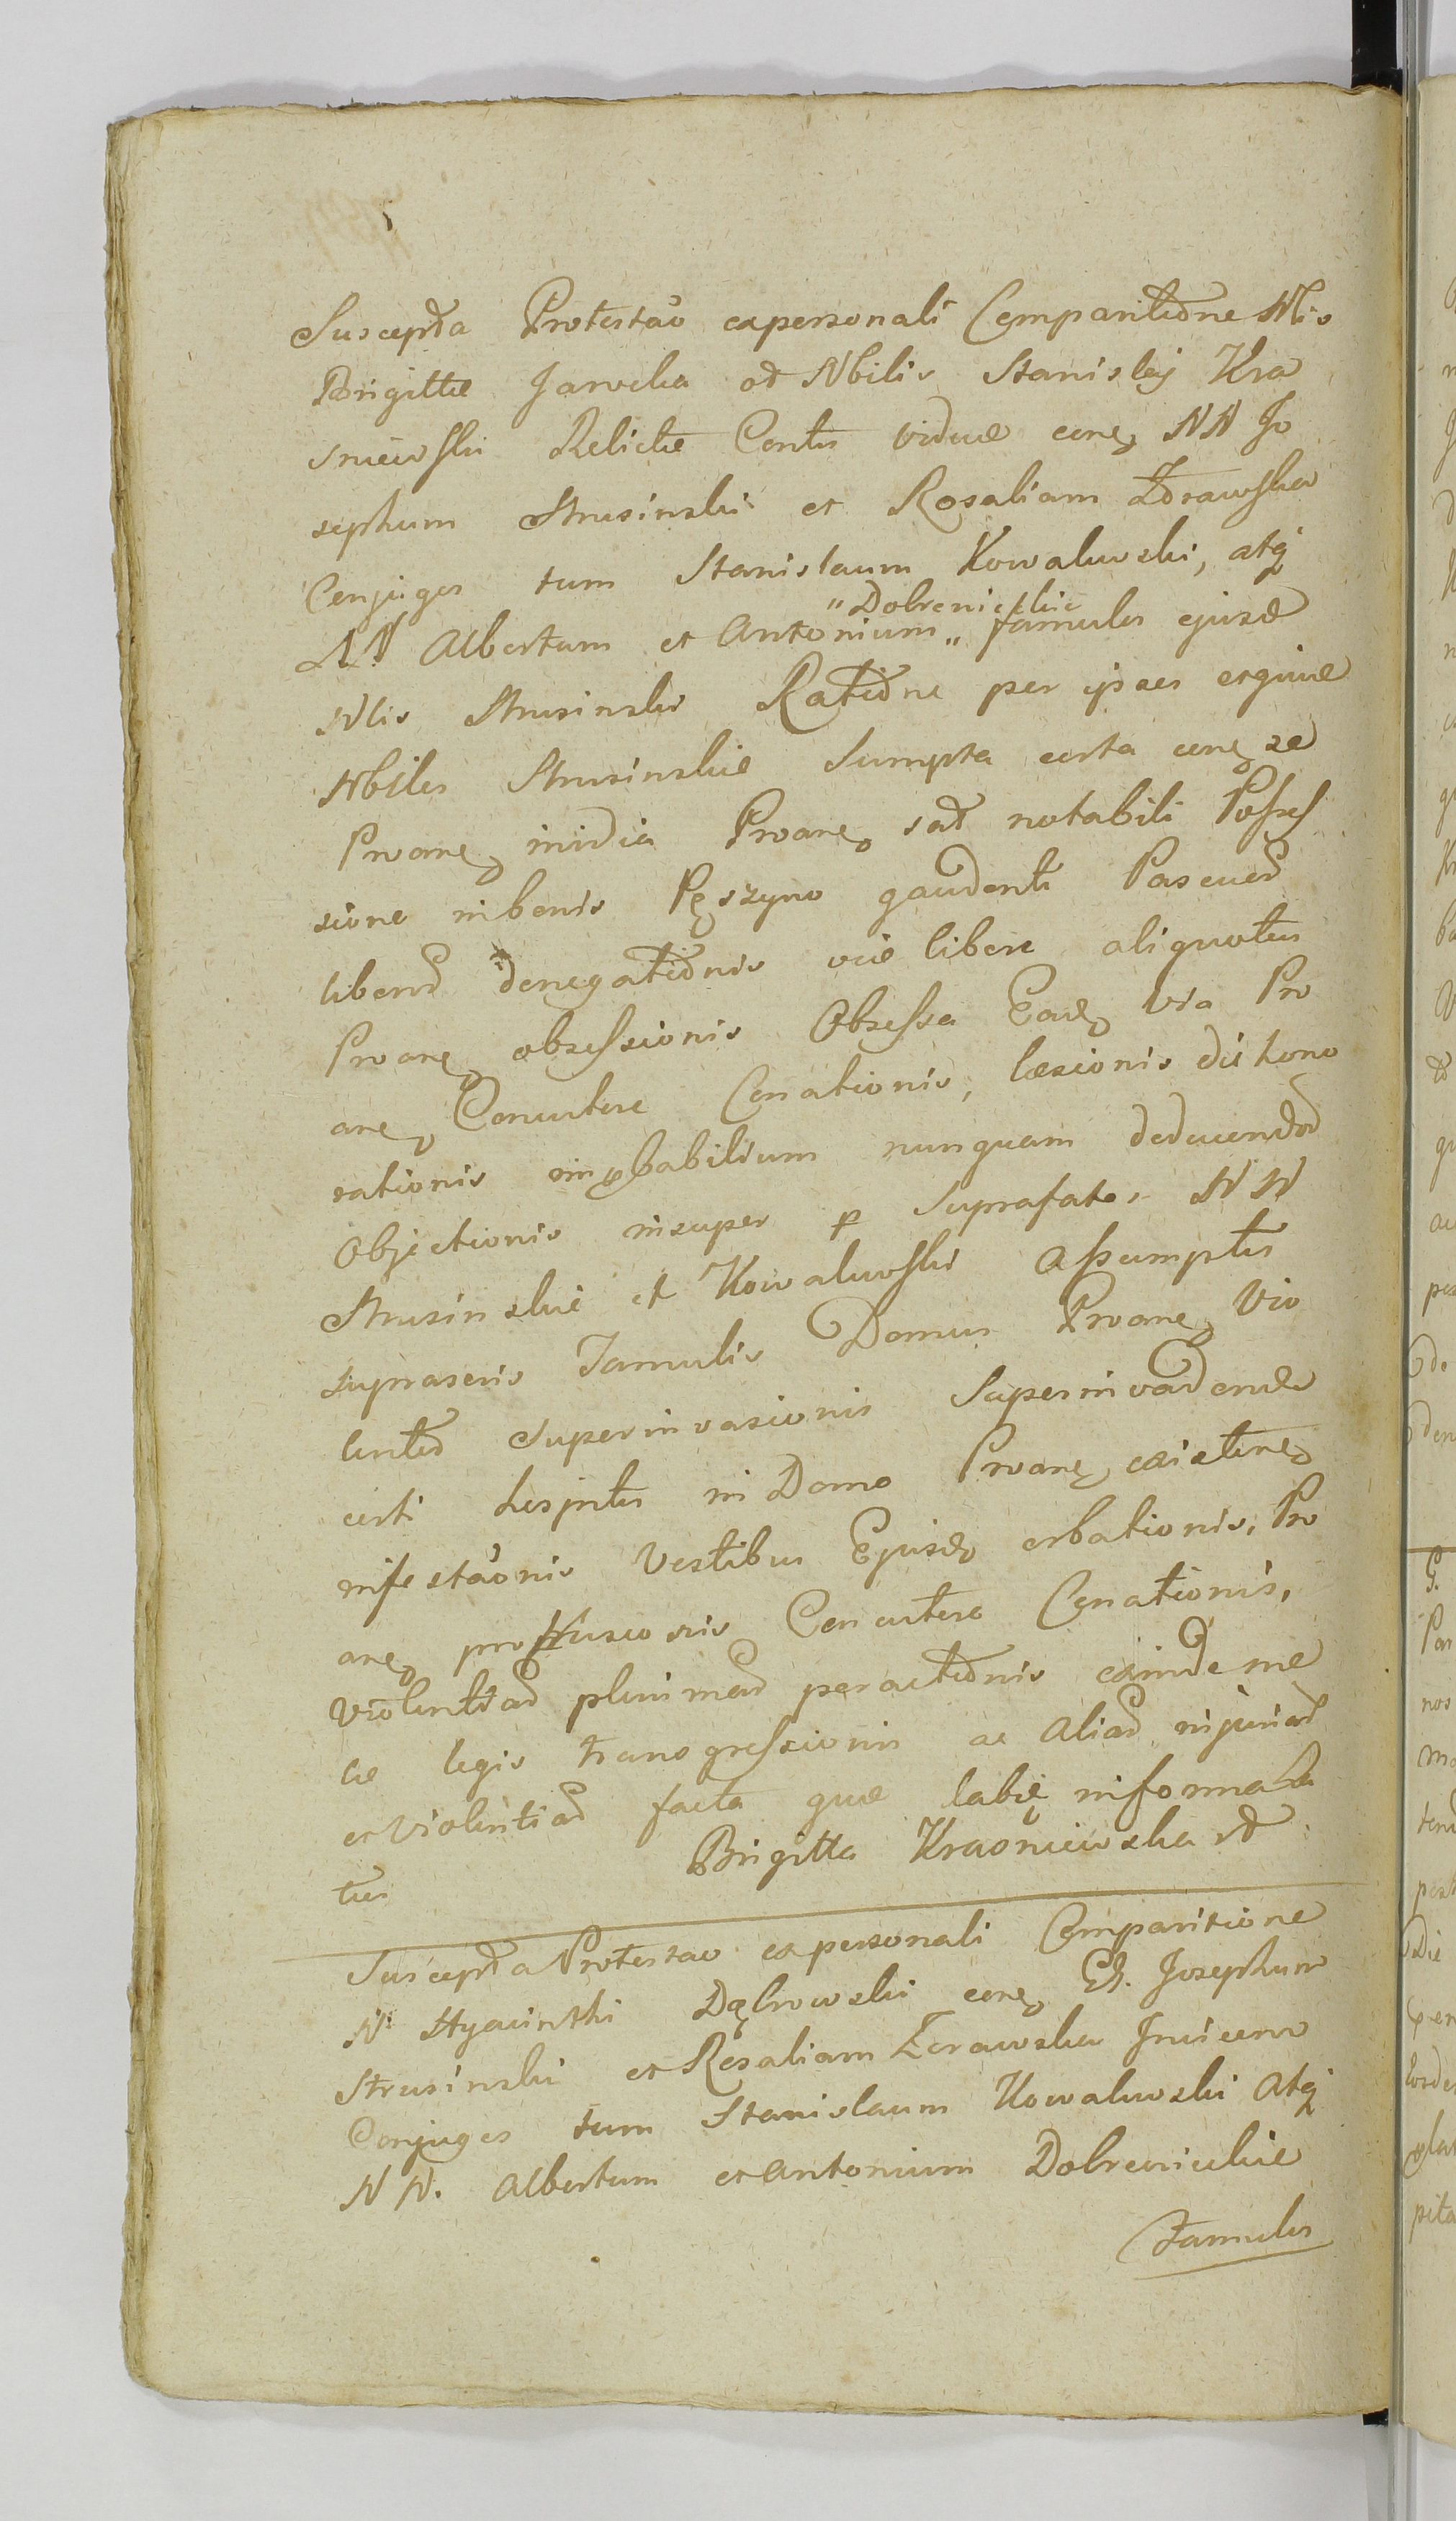 Suscepta Protestao ex personali Comparitione Nlis
Brigittæ Jarocka od Nbilis Stanislaj Kra
sniewski Relictæ Contis viduæ cone NN Jo
sephum Strusinski et Rosaliam Zdrawska
Conjuges tum Stanislaum Kowalewski, atq
NN Albertum et Antonium "Dobrenickie" famulos ejusd
Nlis Strusinski Ratione per ipsos ergine
Nbiles Strusinskie Sumpta certa cone se
Proane inidia Proane sat notabili Posses
sione in bonis Pęszyno gaudenti Pascuor
liberor denegationis viæ libere aliquoties
Proane obsessionis Obsessa Ead via Pro
ane Concutere Conationis, læsionis dishono
rationis improbabilium nunquam deducendor
Objectionis insuper p Suprafatos NN
Strusinskie et Kowalewski Assumptis
supraseris Famulis Domus Proane Vio
lenter superinvasionis Superinvadendo
certi hospitis in Domo Proane existen
infestaonis Vestibus Ejusd orbationis, Pro
ane Concutere Conationis,
violentiar plurimar peractionis exinde me
læ legis transgressionis ac aliar injuriar
et violentiar facta quæ labię informata
tus Brigitta Krasniewska
Suscepta Protestao ex personali Comparitione
N: Hyacinthi Dąbrowski cone G. Josephum
Strusinski et Rosaliam Zdrawska Invicem
Conjuges tum Stanislaum Kowalewski Atq
NN. Albertum et Antonium Dobrenickie
Famulos